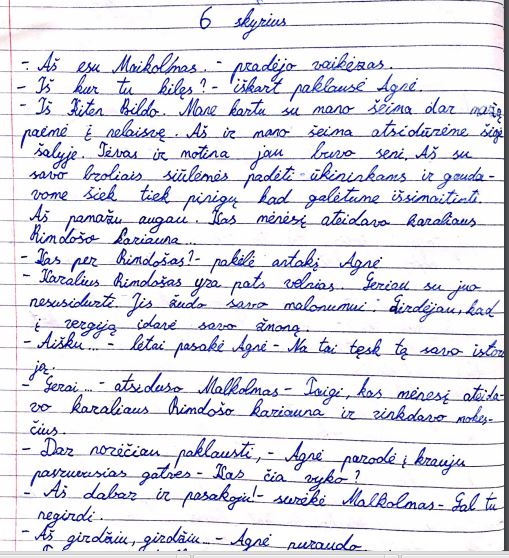 6 skyrius
- Aš esu Maikolmas. - pradėjo vaikėzas.
- Iš kur tu kilęs? - iškart paklausė Agnė.
- Iš Kiten Bildo. Mane kartu su mano šeima dar mažą
paėmė į nelaisvę. Aš ir mano šeima atsidūrėme šioje
šalyje. Tėvas ir motina jau buvo seni, Aš su
savo broliais siūlėmės padėti ūkininkams ir gauda-
vome šiek tiek pinigų kad galėtume išsimaitinti.
Aš pamažu augau. Kas mėnesį ateidavo karaliaus
Rimdošo kariauna...
- Kas per Rimdošas? - pakėlė antakį Agnė
- Karalius Rimdošas yra pats velnias. Geriau su juo
nesusidurti. Jis žudo savo malonumui. Girdėjau, kad
į vergiją idavė savo žmoną.
- Aišku... - lėtai pasakė Agnė - Na tai tęsk tą savo istori
ją.
- Gerai... - atsiduso Malkolmas - Taigi, kas mėnesį ateida-
vo karaliaus Rimdošo kariauna ir rinkdavo mokes-
čius.
- Dar norėčiau paklausti, - Agnė parodė į krauju
pasruvusias gatves - Kas čia vyko?
- Aš dabar ir pasakoju! - suriko Malkolmas - Gal tu
negirdi...
- Aš girdžiu, girdžiu... - Agnė nurando